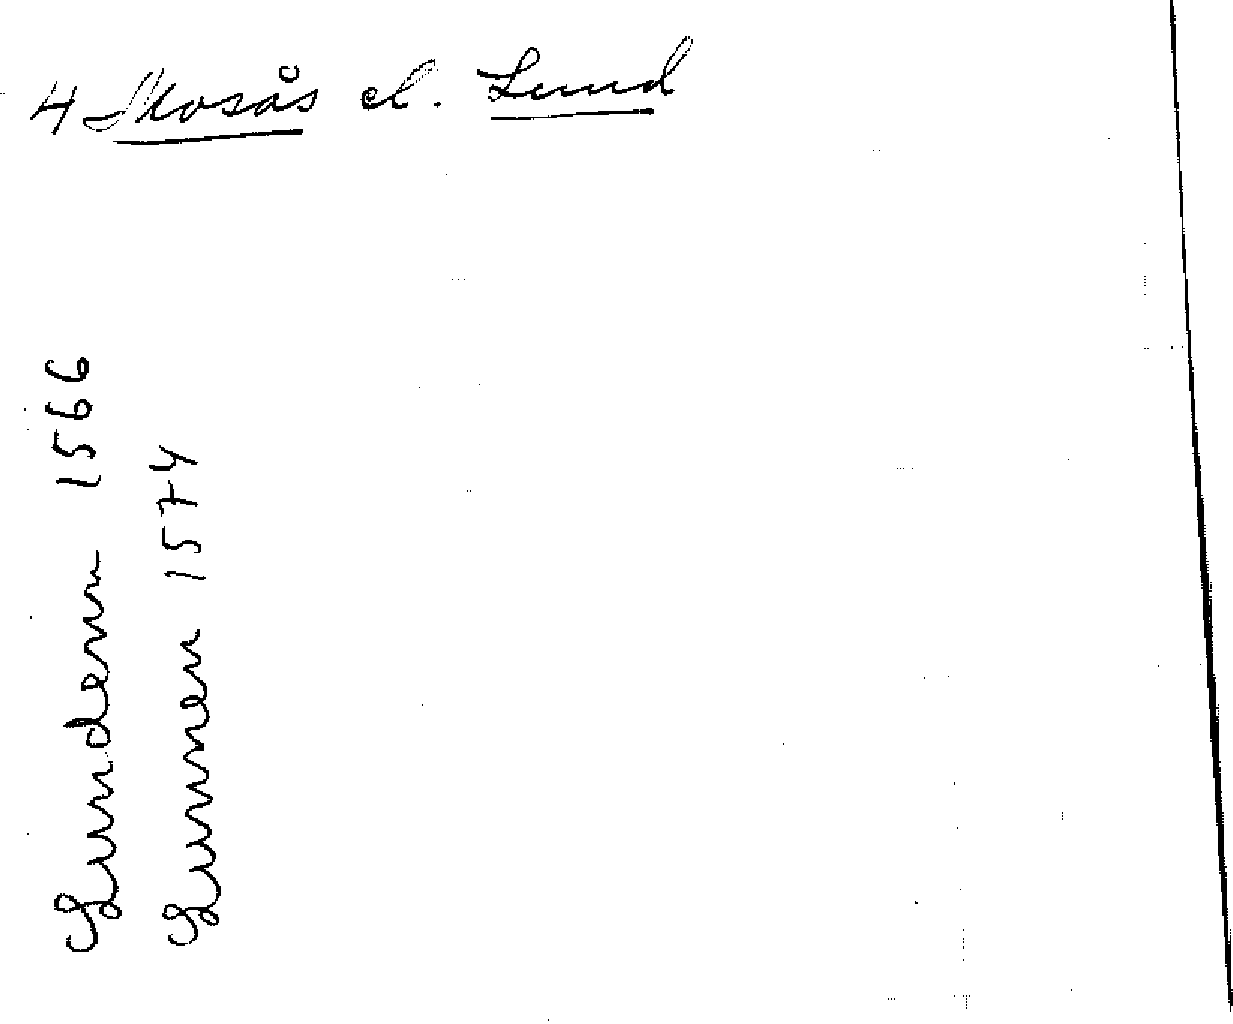 4 Mosås el. Lund
Lundenn 1566
Lunnen 1574